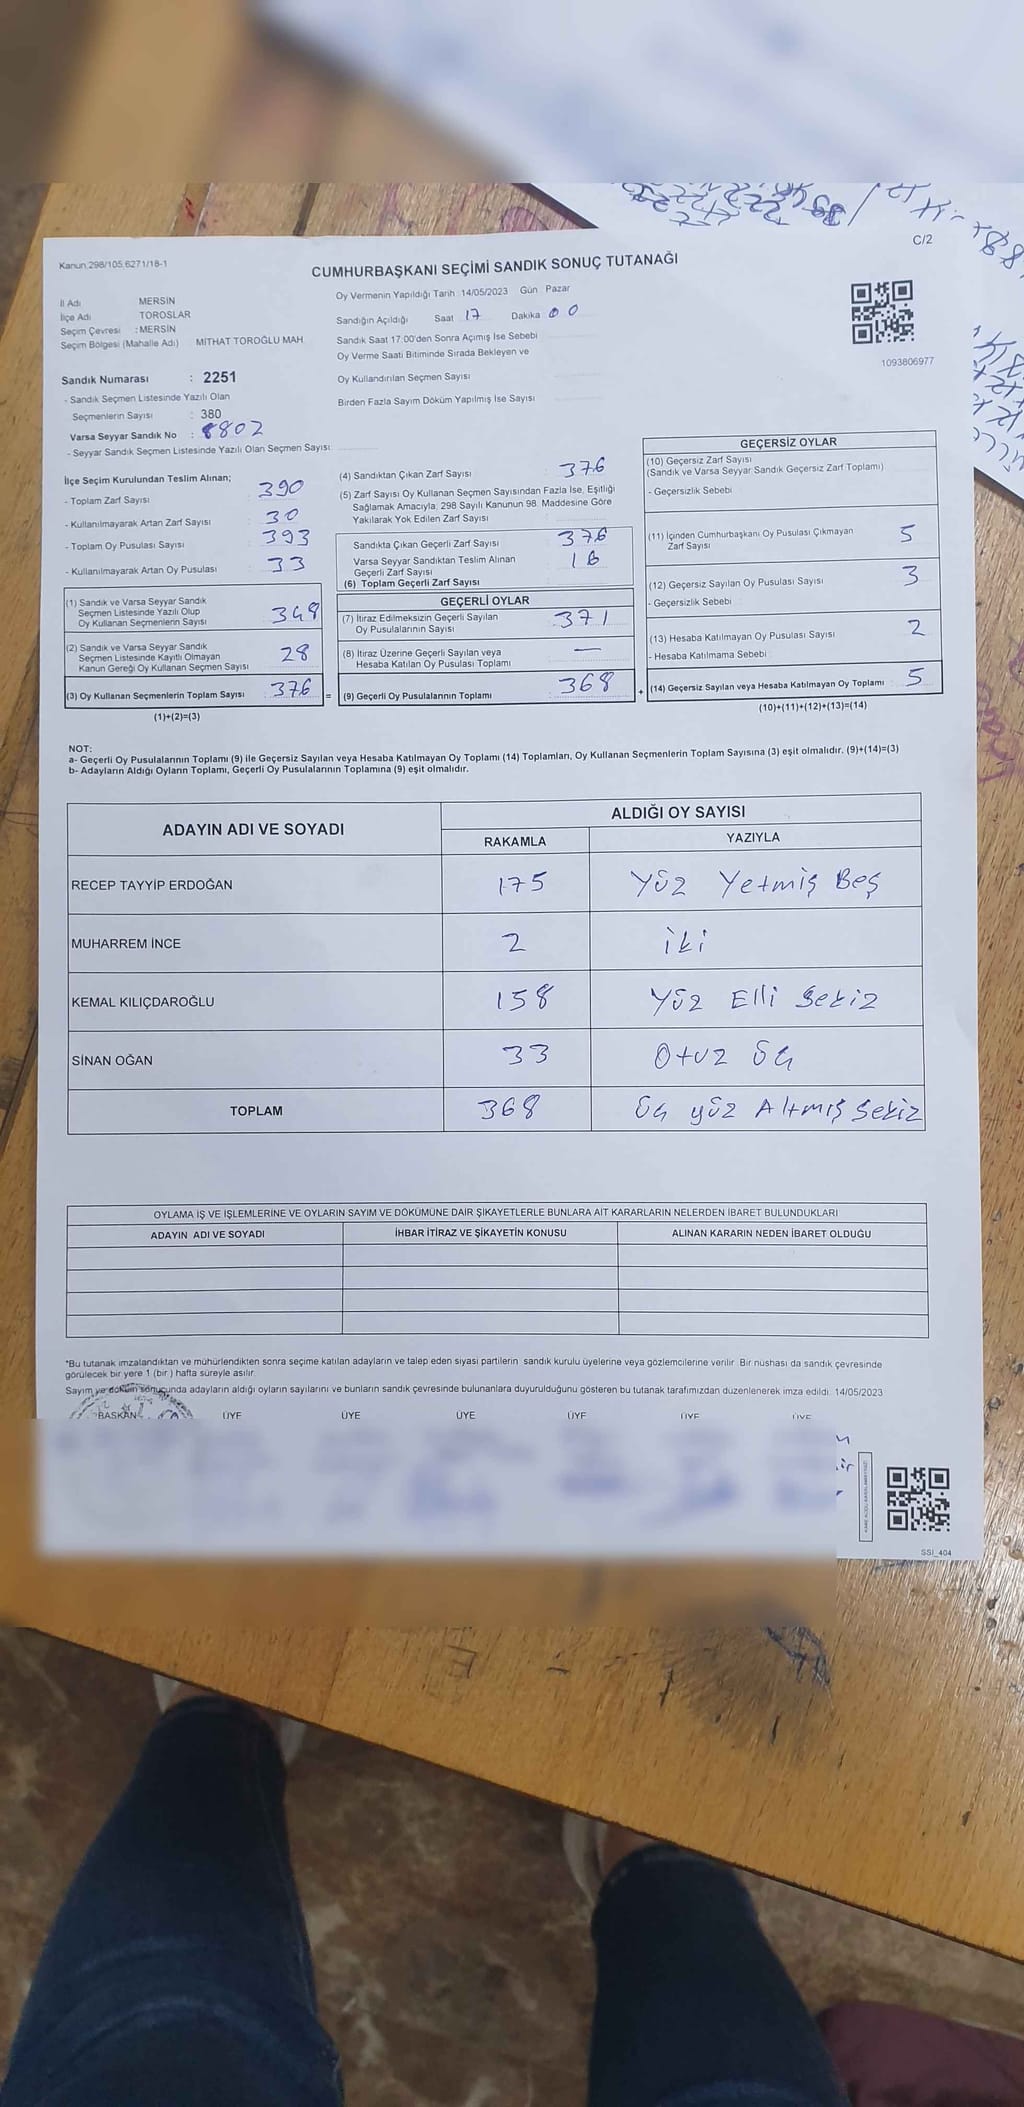 C/2
Kanun:298/105,6271/18-1
CUMHURBAŞKANI SEÇİMİ SANDIK SONUÇ TUTANAĞI
İl Adı MERSİN
İlçe Adı TOROSLAR
Seçim Çevresi : MERSİN
Seçim Bölgesi (Mahalle Adı) MİTHAT TOROĞLU MAH.
Oy Vermenin Yapıldığı Tarih :14/05/2023 Gün : Pazar
Sandığın Açıldığı Saat 17 Dakika 00
Sandık Saat 17:00'den Sonra Açımış İse Sebebi
Oy Verme Saati Bitiminde Sırada Bekleyen ve
Oy Kullandırılan Seçmen Sayısı
Birden Fazla Sayım Döküm Yapılmış İse Sayısı
1093806977
Sandık Numarası : 2251
- Sandık Seçmen Listesinde Yazılı Olan
Seçmenlerin Sayısı : 380
Varsa Seyyar Sandık No : 8802
- Seyyar Sandık Seçmen Listesinde Yazılı Olan Seçmen Sayısı:
İlçe Seçim Kurulundan Teslim Alınan;
- Toplam Zarf Sayısı 390
- Kullanılmayarak Artan Zarf Sayısı 30
- Toplam Oy Pusulası Sayısı 393
- Kullanılmayarak Artan Oy Pusulası 33
(1) Sandık ve Varsa Seyyar Sandık
Seçmen Listesinde Yazılı Olup
Oy Kullanan Seçmenlerin Sayısı 348
(2) Sandık ve Varsa Seyyar Sandık
Seçmen Listesinde Kayıtlı Olmayan
Kanun Gereği Oy Kullanan Seçmen Sayısı 28
(3) Oy Kullanan Seçmenlerin Toplam Sayısı 376
(1)+(2)=(3)
(4) Sandıktan Çıkan Zarf Sayısı 376
(5) Zarf Sayısı Oy Kullanan Seçmen Sayısından Fazla İse, Eşitliği
Sağlamak Amacıyla; 298 Sayılı Kanunun 98. Maddesine Göre
Yakılarak Yok Edilen Zarf Sayısı
Sandıkta Çıkan Geçerli Zarf Sayısı 376
Varsa Seyyar Sandıktan Teslim Alınan
Geçerli Zarf Sayısı 16
(6) Toplam Geçerli Zarf Sayısı
GEÇERLİ OYLAR
(7) İtiraz Edilmeksizin Geçerli Sayılan
Oy Pusulalarının Sayısı 371
(8) İtiraz Üzerine Geçerli Sayılan veya
Hesaba Katılan Oy Pusulası Toplamı —
= (9) Geçerli Oy Pusulalarının Toplamı 368
GEÇERSİZ OYLAR
(10) Geçersiz Zarf Sayısı
(Sandık ve Varsa Seyyar Sandık Geçersiz Zarf Toplamı)
- Geçersizlik Sebebi
(11) İçinden Cumhurbaşkanı Oy Pusulası Çıkmayan
Zarf Sayısı 5
(12) Geçersiz Sayılan Oy Pusulası Sayısı 3
- Geçersizlik Sebebi
(13) Hesaba Katılmayan Oy Pusulası Sayısı 2
- Hesaba Katılmama Sebebi
+ (14) Geçersiz Sayılan veya Hesaba Katılmayan Oy Toplamı 5
(10)+(11)+(12)+(13)=(14)
NOT:
a- Geçerli Oy Pusulalarının Toplamı (9) ile Geçersiz Sayılan veya Hesaba Katılmayan Oy Toplamı (14) Toplamları, Oy Kullanan Seçmenlerin Toplam Sayısına (3) eşit olmalıdır. (9)+(14)=(3)
b- Adayların Aldığı Oyların Toplamı, Geçerli Oy Pusulalarının Toplamına (9) eşit olmalıdır.
ADAYIN ADI VE SOYADI ALDIĞI OY SAYISI
RAKAMLA YAZIYLA
RECEP TAYYİP ERDOĞAN 175 Yüz Yetmiş Beş
MUHARREM İNCE 2 iki
KEMAL KILIÇDAROĞLU 158 Yüz Elli Sekiz
SİNAN OĞAN 33 Otuz Üç
TOPLAM 368 Üç yüz Altmış Sekiz
OYLAMA İŞ VE İŞLEMLERİNE VE OYLARIN SAYIM VE DÖKÜMÜNE DAİR ŞİKAYETLERLE BUNLARA AİT KARARLARIN NELERDEN İBARET BULUNDUKLARI
ADAYIN ADI VE SOYADI İHBAR İTİRAZ VE ŞİKAYETİN KONUSU ALINAN KARARIN NEDEN İBARET OLDUĞU
*Bu tutanak imzalandıktan ve mühürlendikten sonra seçime katılan adayların ve talep eden siyasi partilerin sandık kurulu üyelerine veya gözlemcilerine verilir. Bir nüshası da sandık çevresinde
görülecek bir yere 1 (bir ) hafta süreyle asılır.
Sayım ve döküm sonucunda adayların aldığı oyların sayılarını ve bunların sandık çevresinde bulunanlara duyurulduğunu gösteren bu tutanak tarafımızdan düzenlenerek imza edildi. 14/05/2023
BAŞKAN ÜYE ÜYE ÜYE ÜYE ÜYE ÜYE
SSI_404